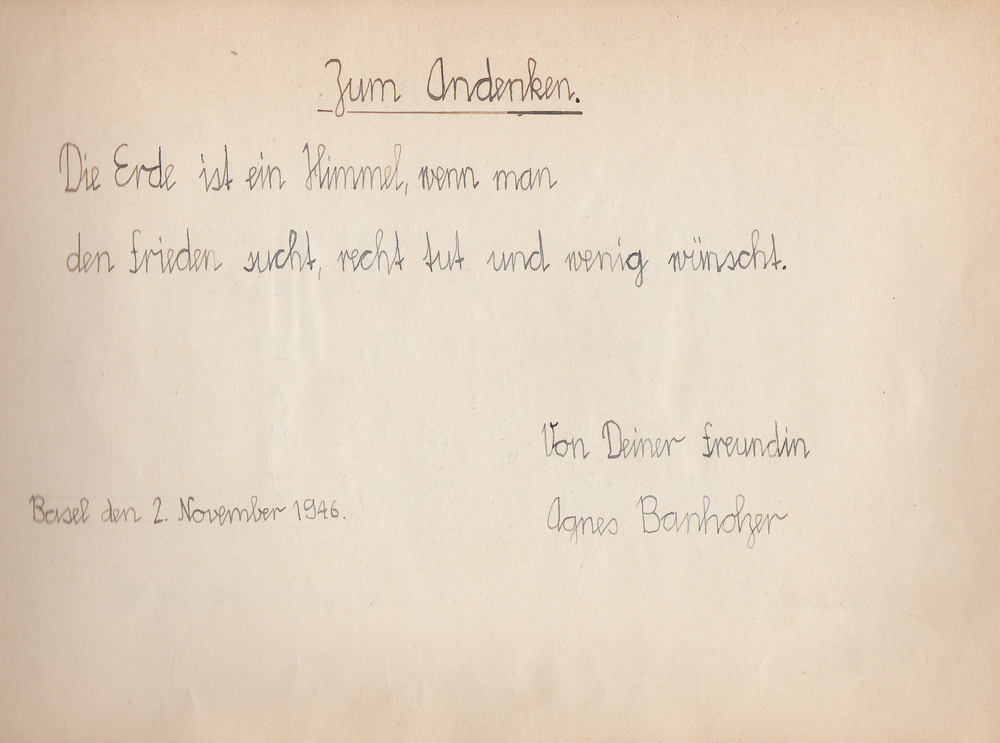 Zum Andenken.
Die Erde ist ein Himmel, wenn man
den Frieden sucht, recht tut und wenig wünscht.
Von Deiner Freundin
Basel den 2. November 1946.
Agnes Banholzer